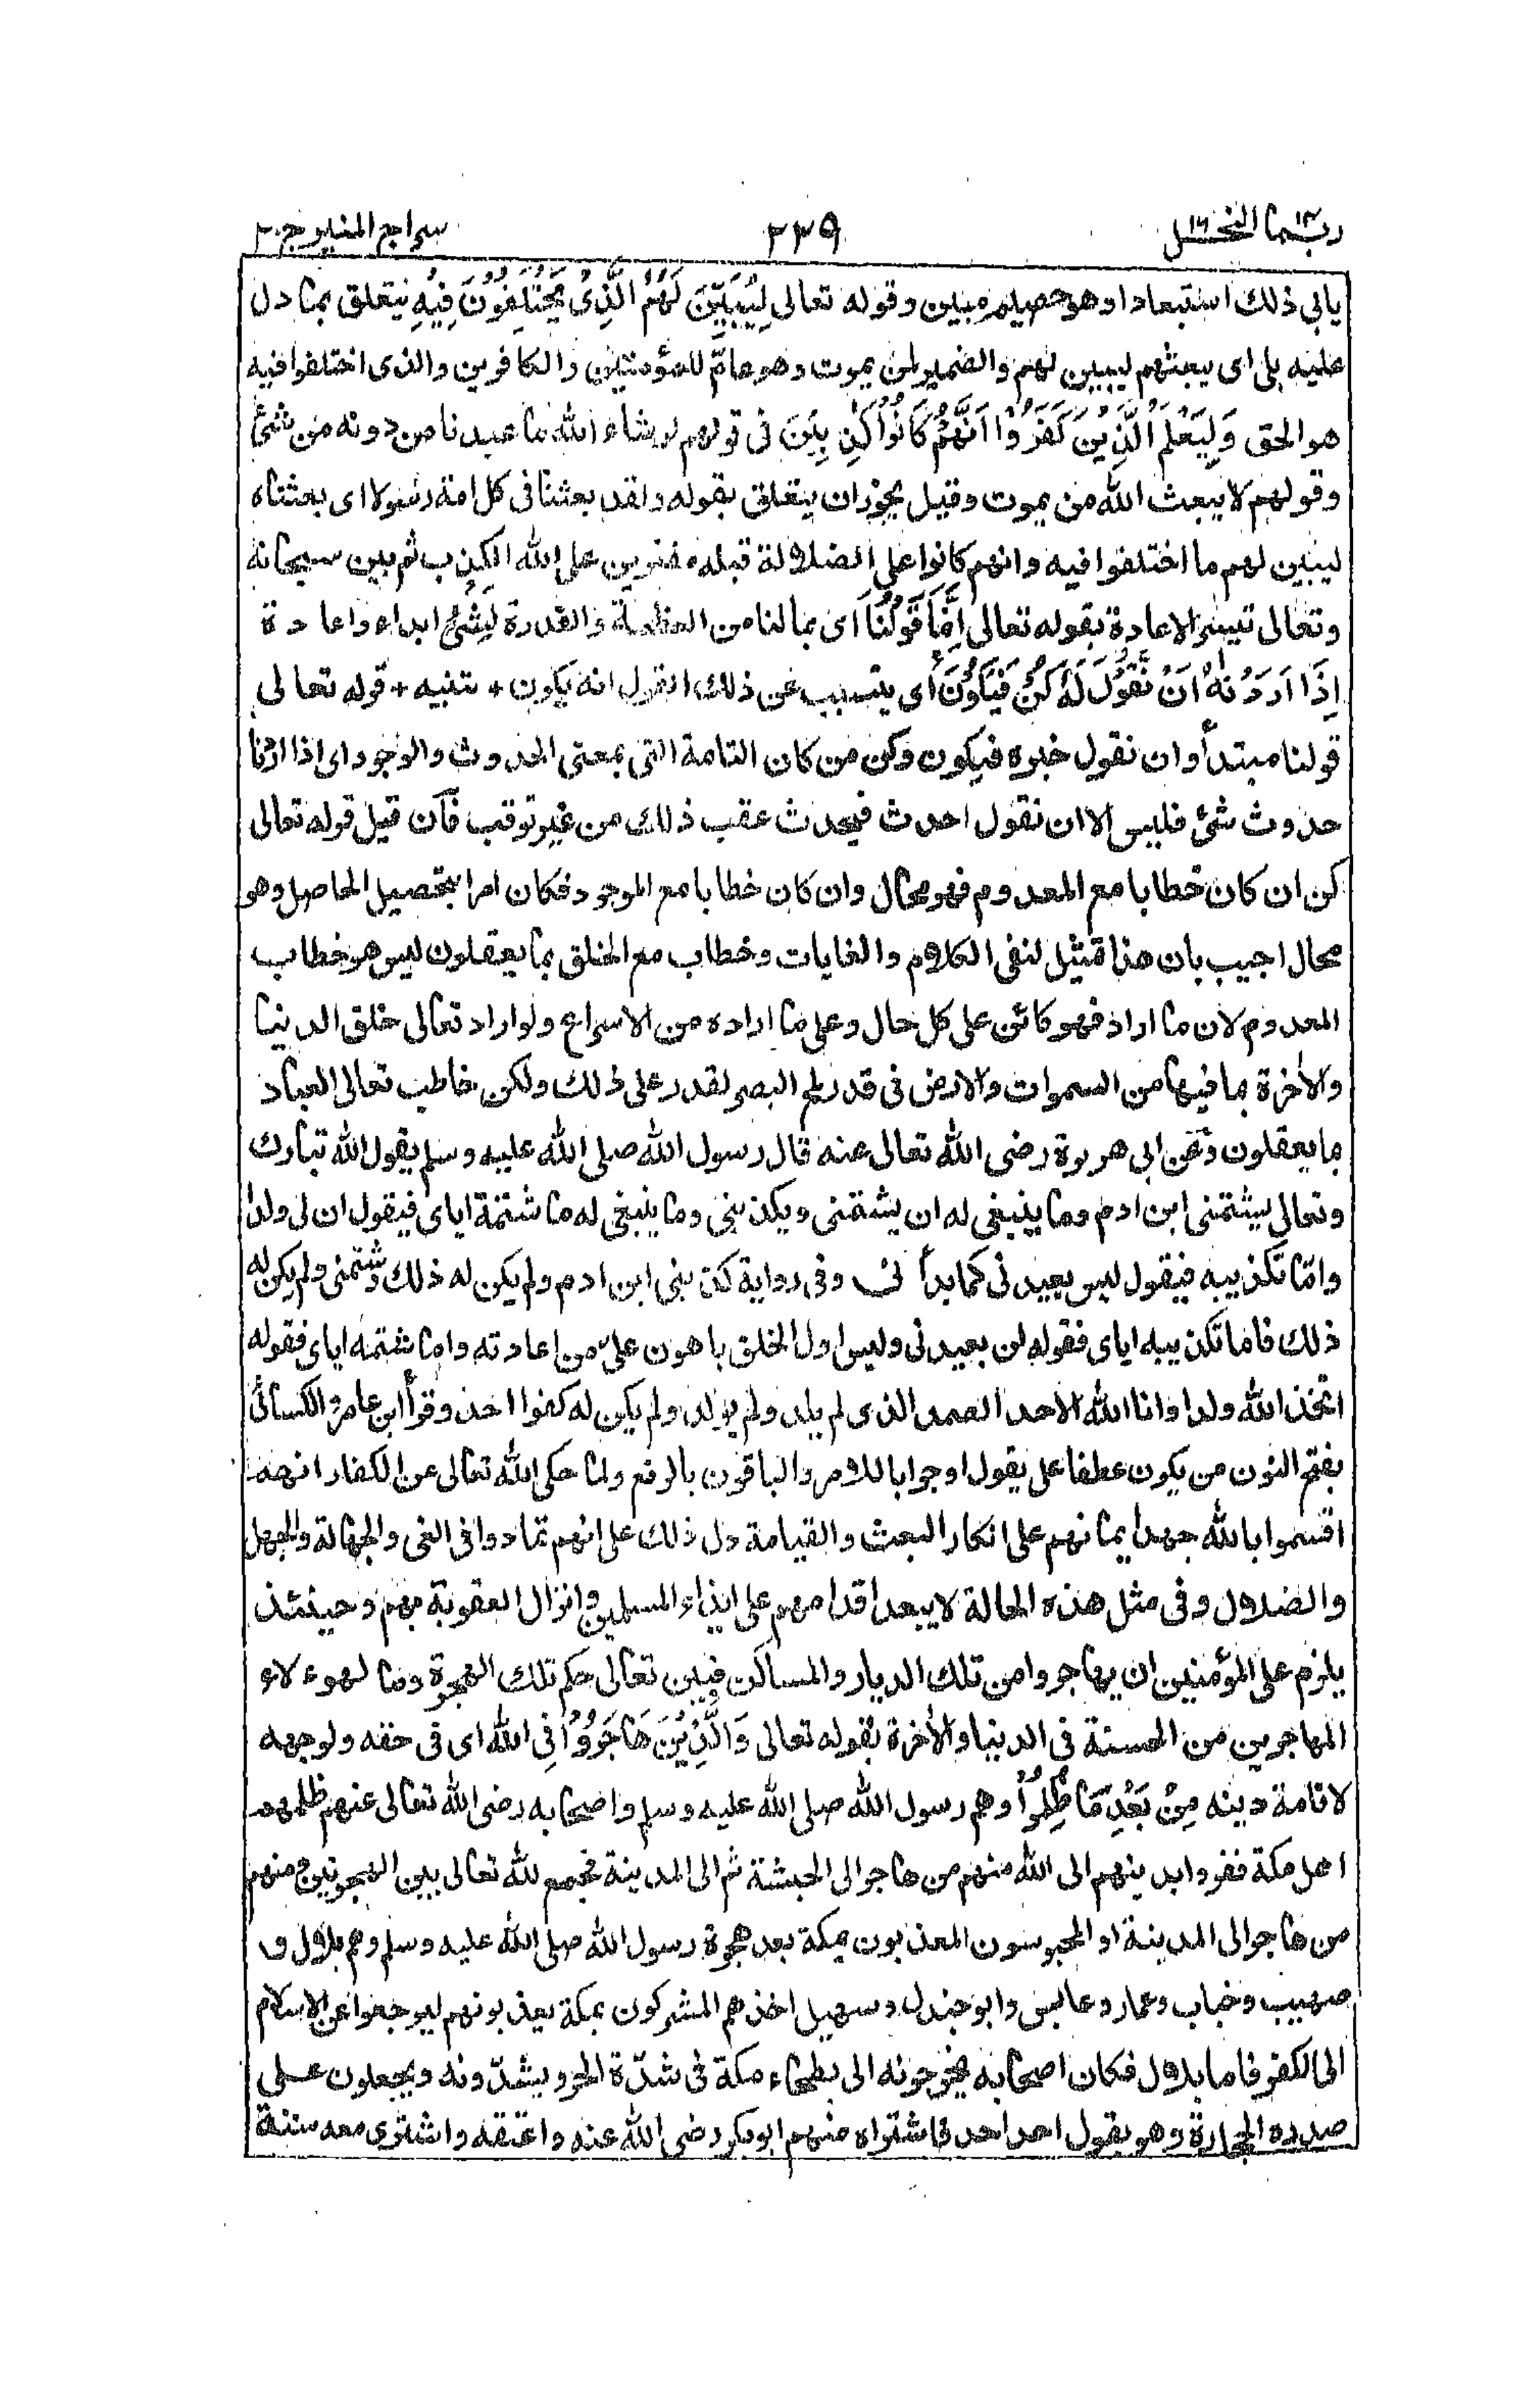 ربما ١٤ النحل ١٦ ٢٣٩ سراج المنير ج ٢
يابى ذلك استبعادا وهو خصيم مبين وقوله تعالى لِيُبَيِّنَ لَهُمُ الَّذِىْ يَخْتَلِفُوْنَ فِيْهِ يتعلق بما دل
عليه بلى اى يبعثهم ليبين لهم والضمير لمن يموت وهو عامّ للمؤمنين والكافرين والذى اختلفوا فيه
هو الحق وَلِيَعْلَمَ الَّذِيْنَ كَفَرُوْا اَنَّهُمْ كَانُوْا كٰذِبِيْنَ فى قولهم لو شاء الله ما عبدنا من دونه من شئ
وقولهم لا يبعث الله من يموت وقيل يجوز ان يتعلق بقوله ولقد بعثنا فى كل امة رسولا اى بعثناه
ليبين لهم ما اختلفوا فيه وانهم كانوا على الضلالة قبله مفترين على الله الكذب ثم بين سبحانه
وتعالى تيسر الاعادة بقوله تعالى اِنَّمَا قَوْلُنَا اى بما لنا من العظمة والقدرة لِشَىْءٍ ابداء واعادة
اِذَا اَرَدْنٰهُ اَنْ نَّقُوْلَ لَهٗ كُنْ فَيَكُوْنُ اى يتسبب عن ذلك القول انه يكون + تنبيه + قوله تعالى
قولنا مبتدأ وان نقول خبره فيكون وكن من كان التامة التى بمعنى الحدوث والوجود اى اذا اردنا
حدوث شئ فليس الا ان نقول احدث فيحدث عقب ذلك من غير توقف فان قيل قوله تعالى
كن ان كان خطابا مع المعدوم فهو محال وان كان خطابا مع الموجود فكان امرا بتحصيل الحاصل وهو
محال اجيب بان هذا تمثيل لنفى الكلام والغايات وخطاب مع الخلق بما يعقلون ليس هو خطاب
المعدوم لان ما اراد فهو كائن على كل حال وعلى ما اراده من الاسراع ولو اراد تعالى خلق الدنيا
والاٰخرة بما فيها من السموات والارض فى قدر لمح البصر لقدر على ذلك ولكن خاطب تعالى العباد
بما يعقلون وعن ابى هريرة رضى الله تعالى عنه قال رسول الله صلى الله عليه وسلم يقول الله تبارك
وتعالى يشتمنى ابن ادم وما ينبغى له ان يشتمنى ويكذبنى وما ينبغى له ما شتمة اياى فيقول ان لى ولدا
وامّا تكذيبه فيقول ليس يعيدنى كما بدأنى وفى رواية كذبنى ابن ادم ولم يكن له ذلك وشتمنى ولم يكن له
ذلك فاما تكذيبه اياى فقوله لن يعيدنى وليس اول الخلق باهون علىّ من اعادته واما شتمه اياى فقوله
اتخذ الله ولدا وانا الله الاحد الصمد الذى لم يلد ولم يولد ولم يكن له كفوا احد وقرأ ابن عامر والكسائى
بفتح النون من يكون عطفا على يقول او جوابا للامر والباقون بالرفع ولما حكى الله تعالى عن الكفار انهم
اقسموا بالله جهد ايمانهم على انكار البعث والقيامة دل ذلك على انهم تمادوا فى الغى والجهالة والجهل
والضلال وفى مثل هذه الحالة لا يبعد اقدامهم على ايذاء المسلمين وانزال العقوبة بهم وحينئذ
يلزم على المؤمنين ان يهاجروا من تلك الديار والمساكن فبين تعالى حكم تلك الهجرة وما لهوءلاء
المهاجرين من الحسنة فى الدنيا والاٰخرة بقوله تعالى وَالَّذِيْنَ هَاجَرُوْا فِى الله اى فى حقه ولوجهه
لاقامة دينه مِنْ بَعْدِ مَا ظُلِمُوْا وهم رسول الله صلى الله عليه وسلم واصحابه رضى الله تعالى عنهم ظلمهم
اهل مكة ففروا بدينهم الى الله منهم من هاجر الى الحبشة ثم الى المدينة فجمع لله تعالى بين الهجرتين ومنهم
من هاجر الى المدينة او المحبوسون المعذبون بمكة بعد هجرة رسول الله صلى الله عليه وسلم وهم بلال و
صهيب وخباب وعمار وعابس وابو جندل وسهيل اخذهم المشركون بمكة يعذبونهم ليرجعوا عن الاسلام
الى الكفر فاما بلال فكان اصحابه يخرجونه الى بطحاء مكة فى شدّة الحر ويشدّونه ويجعلون على
صدره الحجارة وهو يقول احد احد فاشتراه منهم ابو بكر رضى الله عنه واعتقه واشترى معه ستة